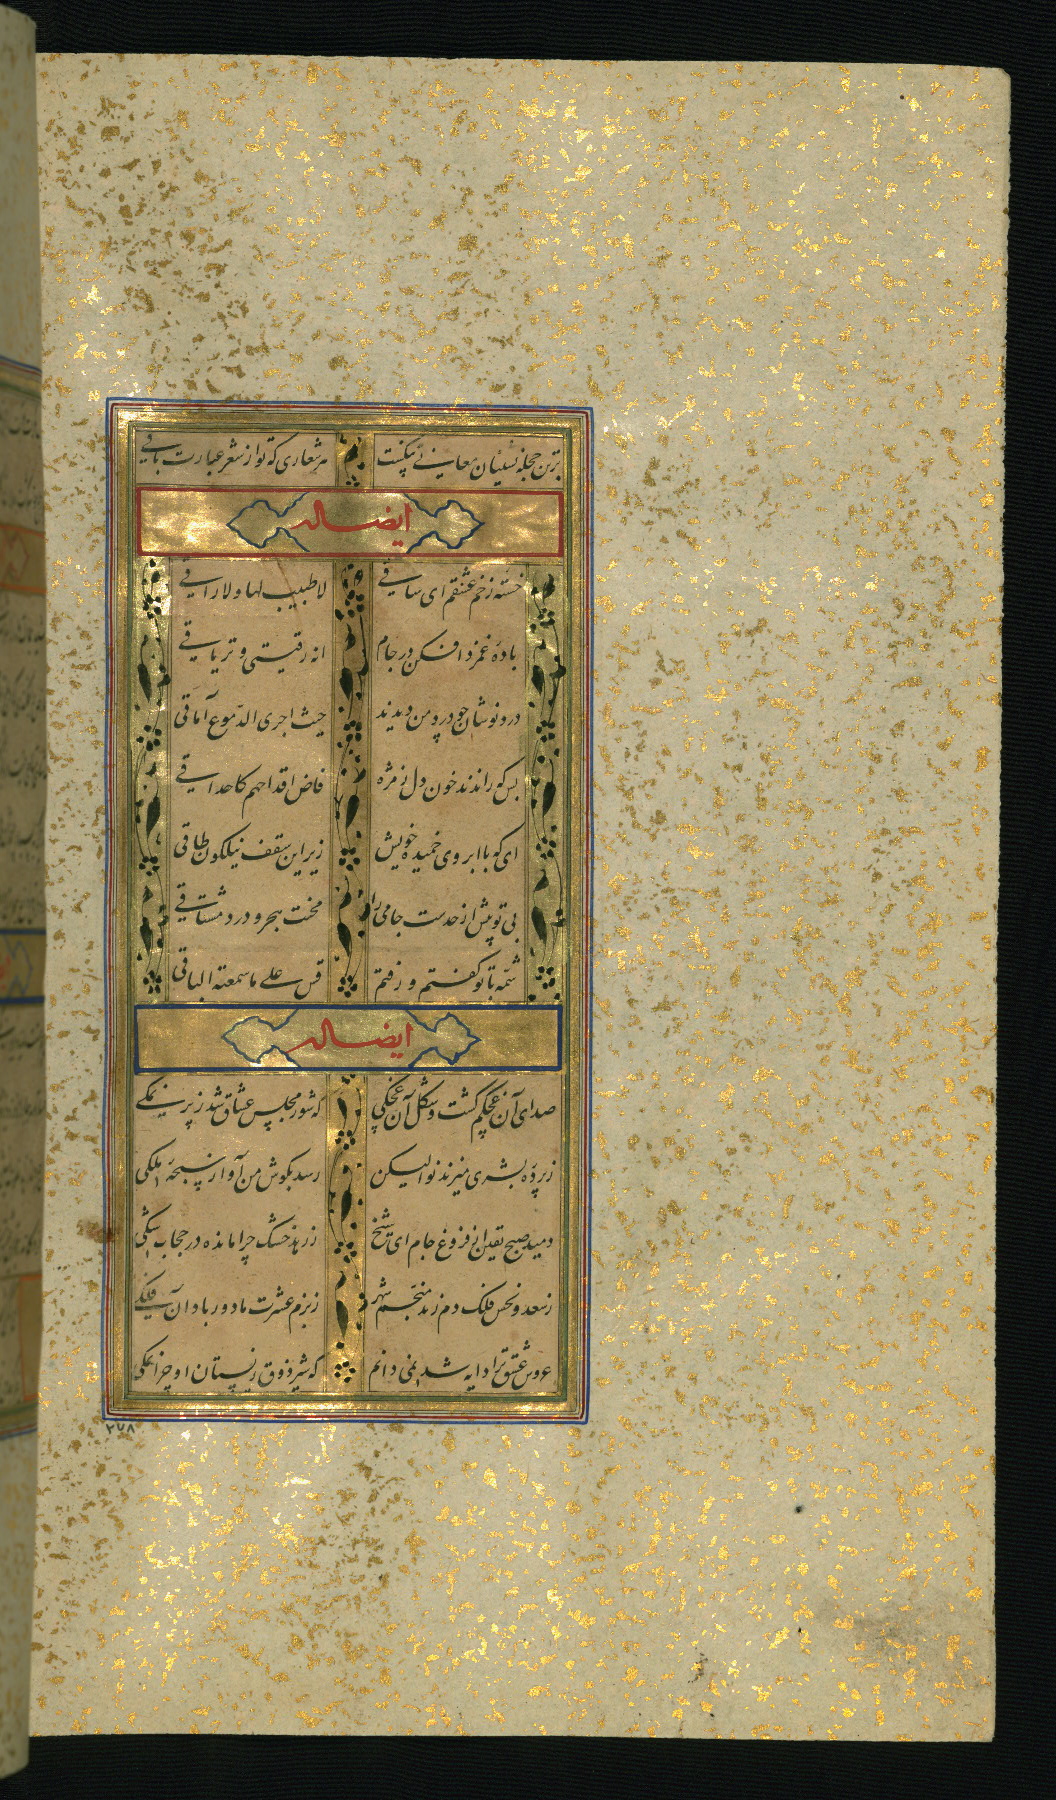 برتن حجله نشینان معانی تنگست هر شعاری که تو از شعر عبارت بافی
ایضا له
خسته زخم عشقم ای ساقی لا طبیب لها و لا راقی
باده غمزدا فکن در جام انه رقیتی و تریاقی
درونوشان چو درو من دیدند حیث اجری الدموع آماقی
بس که راندند خون دل ز مژه فاض اقداحهم کاحداقی
ای که با ابروی خمیده خویش زیر این سقف نیلگون طاقی
بی تو بیش از حدست جامی را محنت هجر و درد مشتاقی
شمه با تو گفتم و رفتم قس علی ما سمعته الباقی
ایضا له
صدای آن غچکم کشت و شکل آن غچکی که شور مجلس عشاق شد ز پر نمکی
ز پرده بشری میزند نوا لیکن رسد بگوش من آواز سبحه ملکی
دمید صبح یقین از فروغ جام ای شیخ ز زهد خشک چرا مانده در حجاب شکی
ز سعد و نحس فلک دم زند منجم شهر ز بزم عشرت ما دور باد آن فلکی
عروس عشق ترا دایه شد نمی دانم که شیر ذوق ز پستان او چرا نمکی
۲۷۸